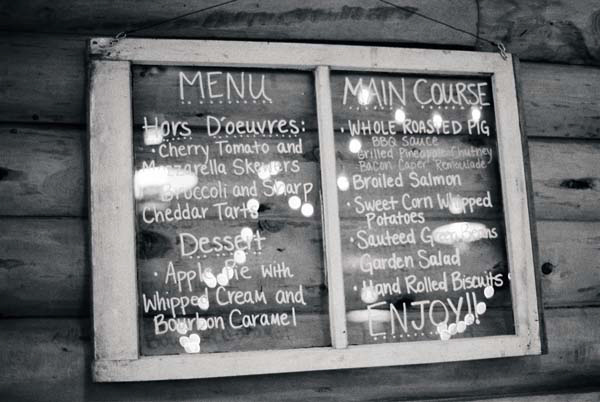 MENU
Hors D'oeuvres:
• Cherry Tomato and
Mozzarella Skewers
• Broccoli and Sharp
Cheddar Tarts
Dessert
• Apple Pie with
Whipped Cream and
Bourbon Caramel
MAIN COURSE
• WHOLE ROASTED PIG
BBQ Sauce
Grilled Pineapple Chutney
Bacon Caper Remoulade
Broiled Salmon
• Sweet Corn Whipped
Potatoes
• Sauteed Green Beans
Garden Salad
• Hand Rolled Biscuits
ENJOY!!